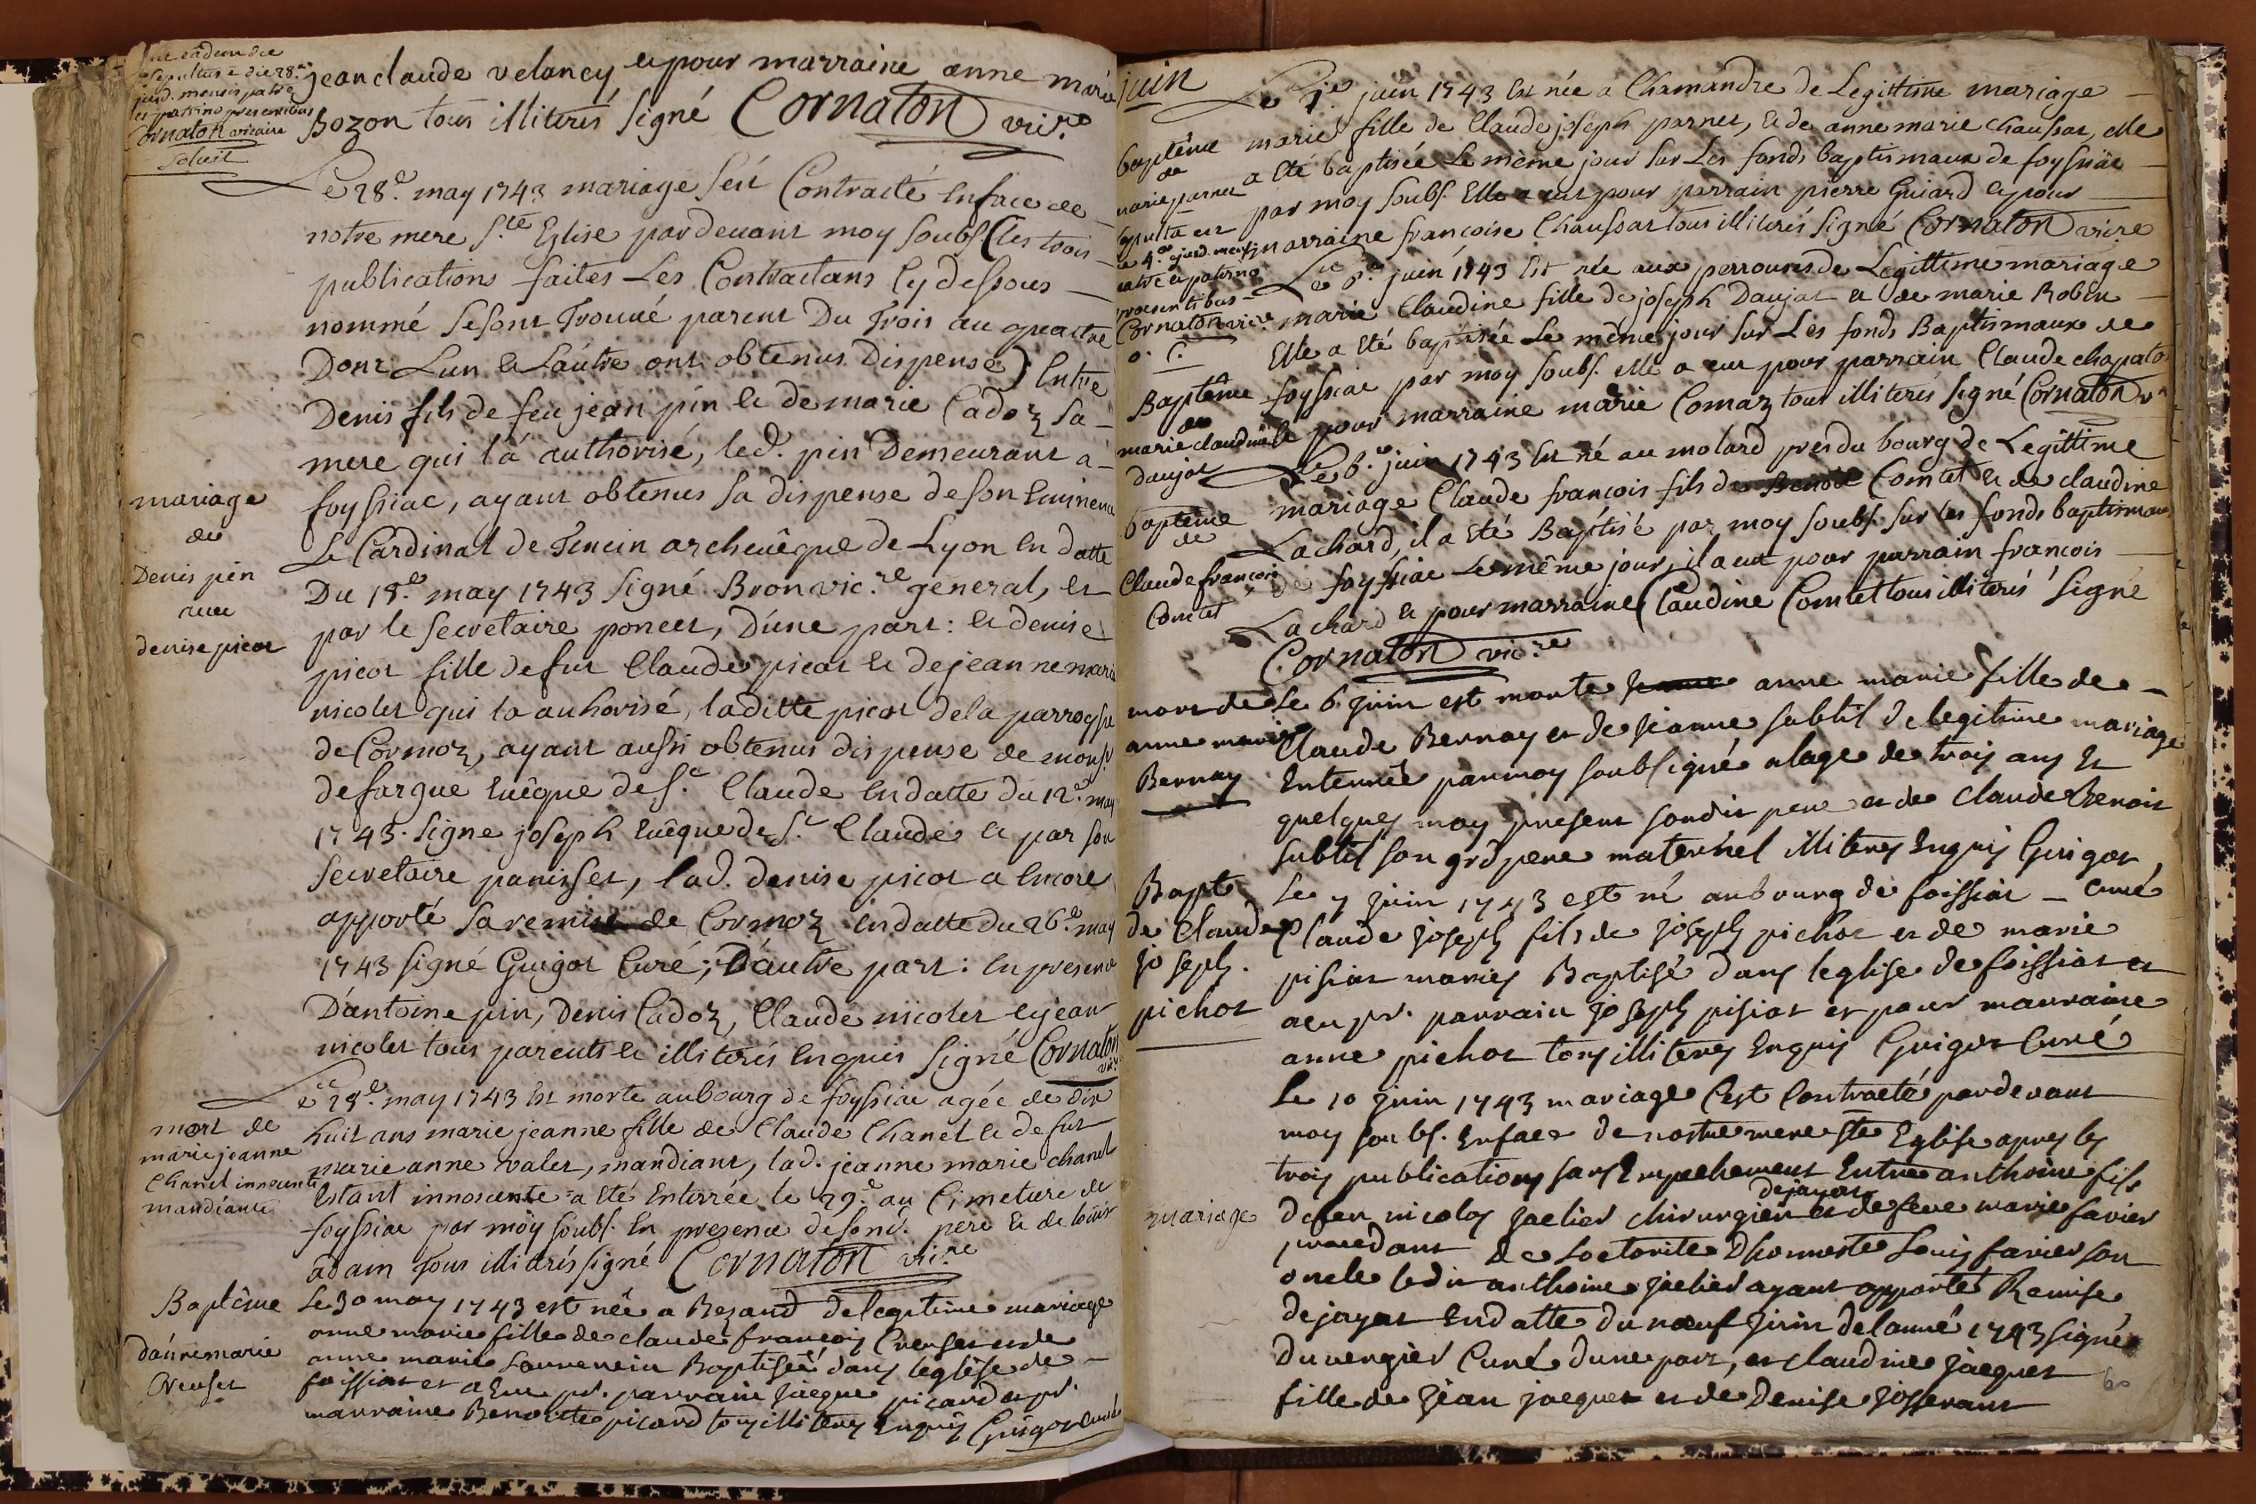 sepultus è die 28.ª
jusd. mensis patre
et patrino presentibus
Cornaton vicaire
soluit
jean claude velancy et pour marraine anne marie
Bozon tous illiterés signé Cornaton vic.re
Le 28.e may 1743 mariage s'eit Contracté enface de
notre mere S.te Eglise pardevant moy soubs. (les trois
publications faites Les Contractans Cy dessous
nommé se sont Trouué parent Du Trois au quattre
Dont L'un et L'autre ont obtenus Dispense) Entre
Denis fils de feu jean pin et de marie Cadoz sa
mere qui l'a authorisé, led. pin Demeurant a
foyssiac, ayant obtenus sa dispense de son Eminence
Le Cardinal de Tencin archeuêque de Lyon en datte
Du 18.e may 1743 signé Bron vic.re general, et
par le secretaire poncet, D'une part: et denise
picot fille de fut Claude picot et de jeanne marie
nicolet qui la authorisé, laditte picot dela parroysse
de Cormoz, ayant aussi obtenus dispense de mons.r
defargue Euêque de S.t Claude en datte du 12.e may
1743. signe joseph Euêque de S.t Claude et par son
secretaire panisset, lad. denise picot a Encore
apporté sa remise de Cormoz en datte du 26.e may
1743 signé Guigot Curé; D'autre part: en presence
D'antoine pin, Denis Cadoz, Claude nicolet et jean
nicolet tous parents et illiterés enquis signé Cornaton
vic.re
mariage
de
Denis pin
avec
denise picot
Le 28.e may 1743 Est morte au bourg de foyssiac agée de dix
huit ans marie jeanne fille de Claude Chanel et de fut
marie anne valet, mandiant, lad. jeanne marie chanel
Estant innosante a Eté Enterrée le 29.e au Cimetiere de
foyssiac par moy soubs. En presence de sond. pere et de
adam tous illiterés signé Cornaton vic.re
mort de
marie jeanne
Chanel innocente
mandiante
Le 30 may 1743 est née a Bezand de legitime mariage
anne marie fille de claude françoy Creuset et de
anne marie Baptisée dans leglise de
foissiat et a Eue pr. parrain Jacque picard et pr.
marraine Benoitte picard tous illiterez Enquis Guigot Curé
Baptême
d'anne marie
Creuset
juin
Le 1.e juin 1743 Est née a Chamandre de Legittime mariage
marie fille de Claude joseph parnet, et de anne marie chaussat, elle
a Eté baptisée Le même jour sur Les fonds baptismaux de foyssiac
par moy soubs. Elle a eut pour parrain pierre Guiard et pour
marraine francoise Chaussat tous illiterés signé Cornaton vic.re
baptême
de
marie parnet
sepulta est
die 4.a ejusd. mensis
patre et patrino
presentibus
Cornaton vic.re
Le juin 1743 Est née aux perrouses de Legittime mariage
marie Claudine fille de joseph Daujat et de marie Robin
Elle a Eté baptisée Le même jour sur Les fonds Baptismaux de
foyssiac par moy soubs. elle a eut pour parrain Claude chapato
et pour marraine marie Comaz tous illiterés signé Cornaton v.re
Baptême
de
marie claudine
Daujat
Le 6.e juin 1743 Est né au molard pres du bourg de Legittime
mariage Claude françois fils de Benoit Comtet et de claudine
Lachard, il a Eté Baptisé par moy soubs. sur les fonds baptismaux
de foyssiac Le même jour, il a eut pour parrain francois
Lachard et pour marraine Claudine Comtet tous illiterés signé
Cornaton vic.re
baptême
de
Claude françois
Comtet
Le 6 juin est morte anne marie fille de
Claude Bernay et de Jeanne subtil de legitime mariage
Enterrée par moy soubsigné a lage de trois ans Et
quelques moy present sondit pere et de Claude Benoit
subtil son grd pere maternel illiterez Enquis Guigot
Curé
mort de
anne marie
Bernay
Le 7 Juin 1743 est né au bourg de foissiat
Claude Joseph fils de Joseph pichot et de marie
pisiat mariez Baptisé dans leglise de foissiat et
a eu pr. parrain Joseph pisiat et pour marraine
anne pichot tous illiterez Enquis Guigot Curé
Bapt.
de Claude
Joseph.
pichot
Le 10 Juin 1743 mariage s'est Contracté pardevant
moy soubs. Enface de nostre mere Ste Eglise apres les
trois publications sans Empechement Entre anthoine fils
de jayat
defeu nicolas Jaclier chirurgien et de feue marie favier
procedant de Lotorité dhonneste Louis favier son
oncle ledit anthoine Jaclier ayant apporté Remise
de jayat Endatte du neuf Juin de lanné 1743 signé
Duvergier Curé dune part, et Claudine Jacquet
fille de Jean jacquet et de Denise Josserant
mariage